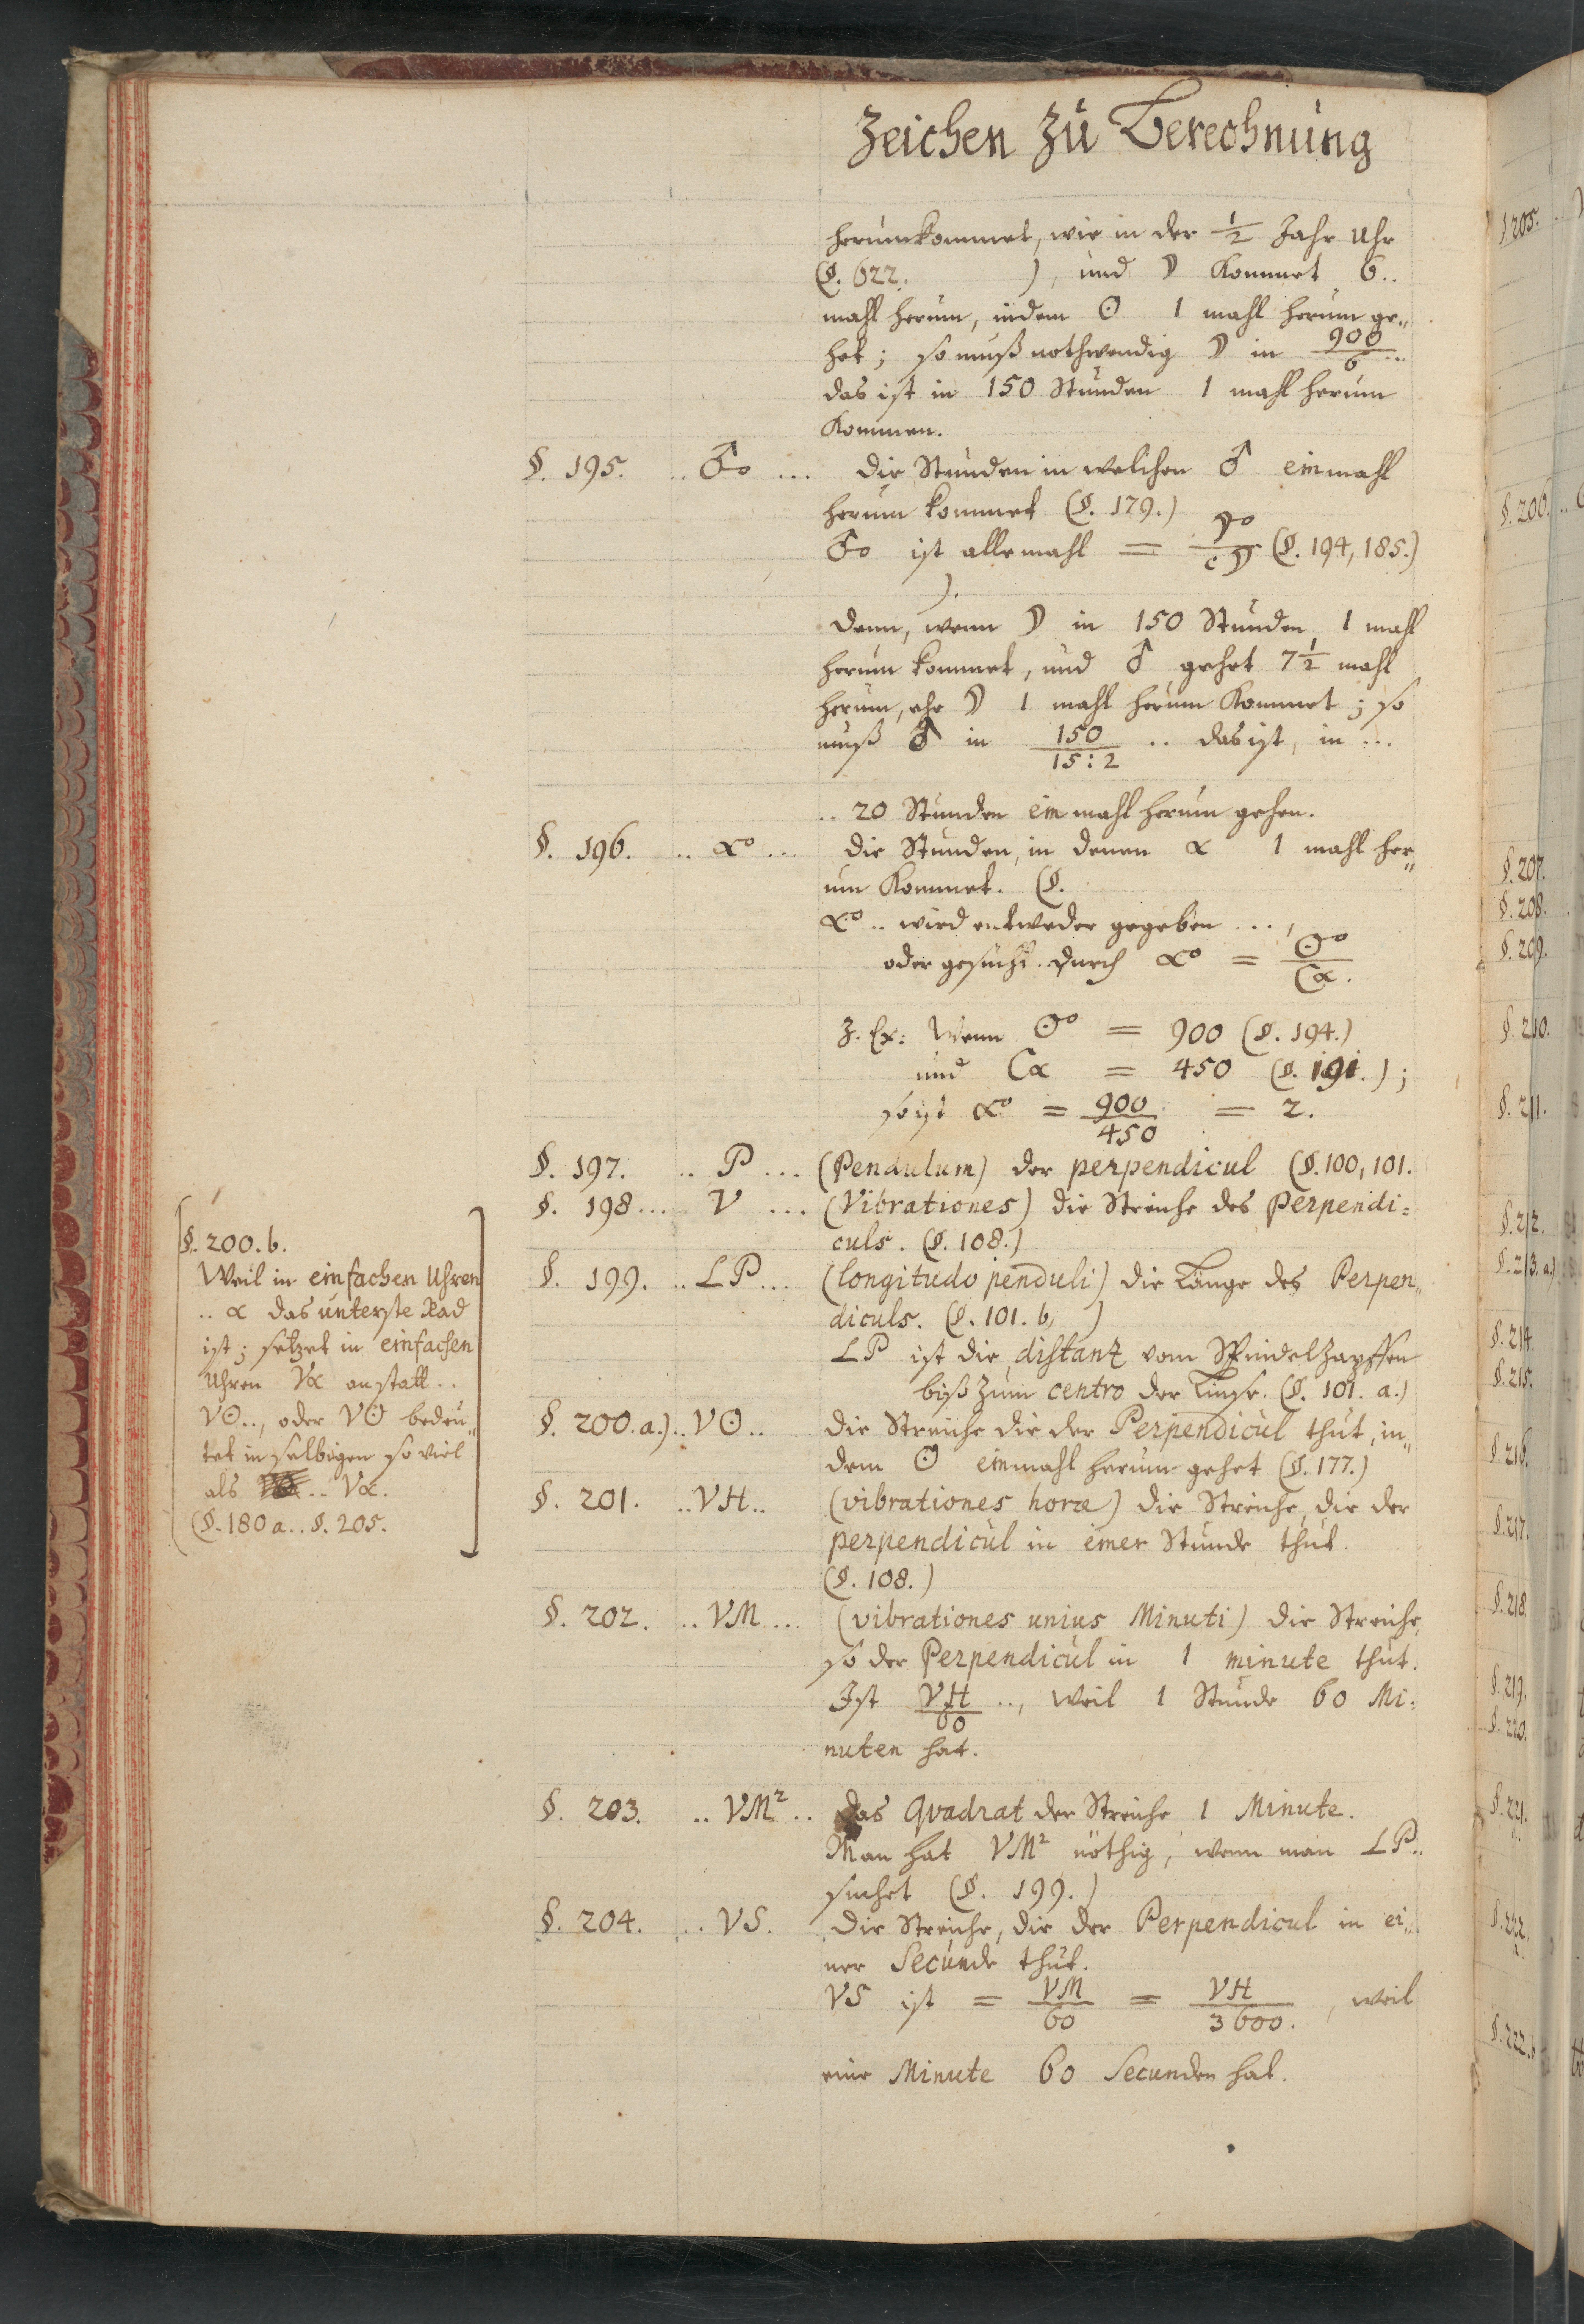 Zeichen zu Berechnung
herumkommet, wie in der 1/2 Jahr Uhr
(§. 622. ), und ☽ kommet 6..
mahl herum, indem ☉ 1 mahl herum ge„
het; so muß nothwendig ☽ in 900/6 ...
das ist in 150 Stunden 1 mahl herum
kommen.
§. 195. .. ♂o ... die Stunden in welchen ♂ einmahl
herum kommet (§. 179.)
♂o ist allemahl = ☽o/c☽ (§. 194, 185.)
).
denn, wenn ☽ in 150 Stunden 1 mahl
herum kommet, und ♂ gehet 7 1/2 mahl
herum, ehe ☽ 1 mahl herum kommet; so
muß ♂ in 150/15:2 .. das ist, in ...
.. 20 Stunden ein mahl herum gehen.
§. 196. .. αo ... die Stunden, in denen α 1 mahl her„
um kommet. (§.
αo .. wird entweder gegeben ...,
oder gesucht. durch αo = ☉o/Cα.
Z. Ex: Wenn ☉o = 900 (§. 194.)
und Cα = 450 (§. 191.);
so ist αo = 900/450 = 2.
§. 197. .. P ... (Pendulum) der perpendicul (§. 100, 101.
§. 198 ... V ... (Vibrationes) die Streiche des Perpendi=
culs. (§. 108.)
§. 199. .. LP ... (longitudo penduli) die Länge des Perpen„
diculs. (§. 101. b, )
LP ist die distanz vom Spindelzapffen
biß zum centro der Linse. (§. 101. a.)
§. 200. a.) .. V☉ .. die Streiche die der Perpendicul thut, in„
dem ☉ einmahl herum gehet (§. 177.)
§. 201. .. VH .. (vibrationes horæ) die Streiche, die der
perpendicul in einer Stunde thut.
(§. 108.)
§. 202. .. VM ... (vibrationes unius Minuti) die Streiche,
so der Perpendicul in 1 minute thut.
Ist VH/60 .., weil 1 Stunde 60 Mi=
nuten hat.
§. 203. .. VM² .. das Qvadrat der Streiche 1 Minute.
Man hat VM² nöthig, wenn man LP..
suchet (§. 199.)
§. 204. .. VS. die Streiche, die der Perpendicul in ei„
ner Secunde thut.
VS ist = VM/60 = VH/3600. , weil
eine Minute 60 Secunden hat.
[§. 200. b.
Weil in einfachen Uhren
.. α das unterste Rad
ist; setzet in einfachen
Uhren Vα anstatt ..
V☉.., oder V☉ bedeu„
tet in selbigen so viel
als .. Vα.
(§. 180 a.. §. 205.]
1205.
§. 206.
§. 207.
§. 208.
§. 209.
§. 210.
§. 211.
§. 212.
§. 213. a.)
§. 214
§. 215.
§. 216.
§. 217.
§. 218.
§. 219.
§. 220.
§. 221.
§. 222.
§. 222. b